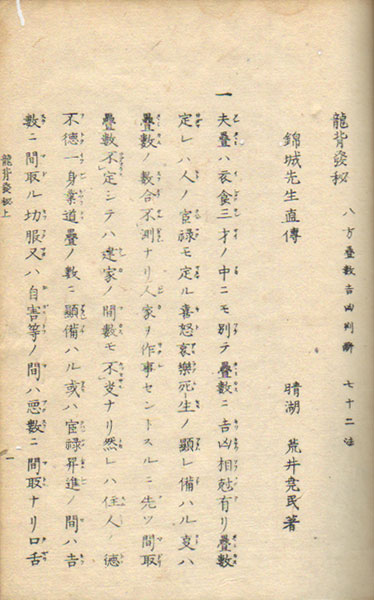 龍背發秘 八方疊數吉凶判断 七十二法
錦城先生直傳 晴湖 荒井尭民著
一
夫疊ハ衣食三才ノ中ニモ別テ疊數ニ吉凶相尅有リ疊數
定レハ人ノ官禄モ定ル喜怒哀樂死生ノ顕レ備ハル叓ハ
疊數ノ數合不測ナリ人家ヲ作事セントスルニ先ツ間取
疊數不定シテハ建家ノ間數モ不叓ナリ然レハ住人ノ德
不德一身業道疊ノ數ニ顕備ハル或ハ官禄昇進ノ間ハ吉
數ニ間取ル切服又ハ自害等ノ間ハ悪數ニ間取ナリ口舌
龍背發秘上 一